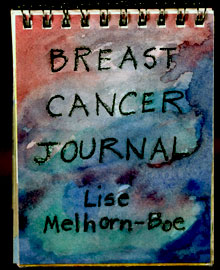 BREAST
CANCER
JOURNAL
Lise
Melhorn-Boe